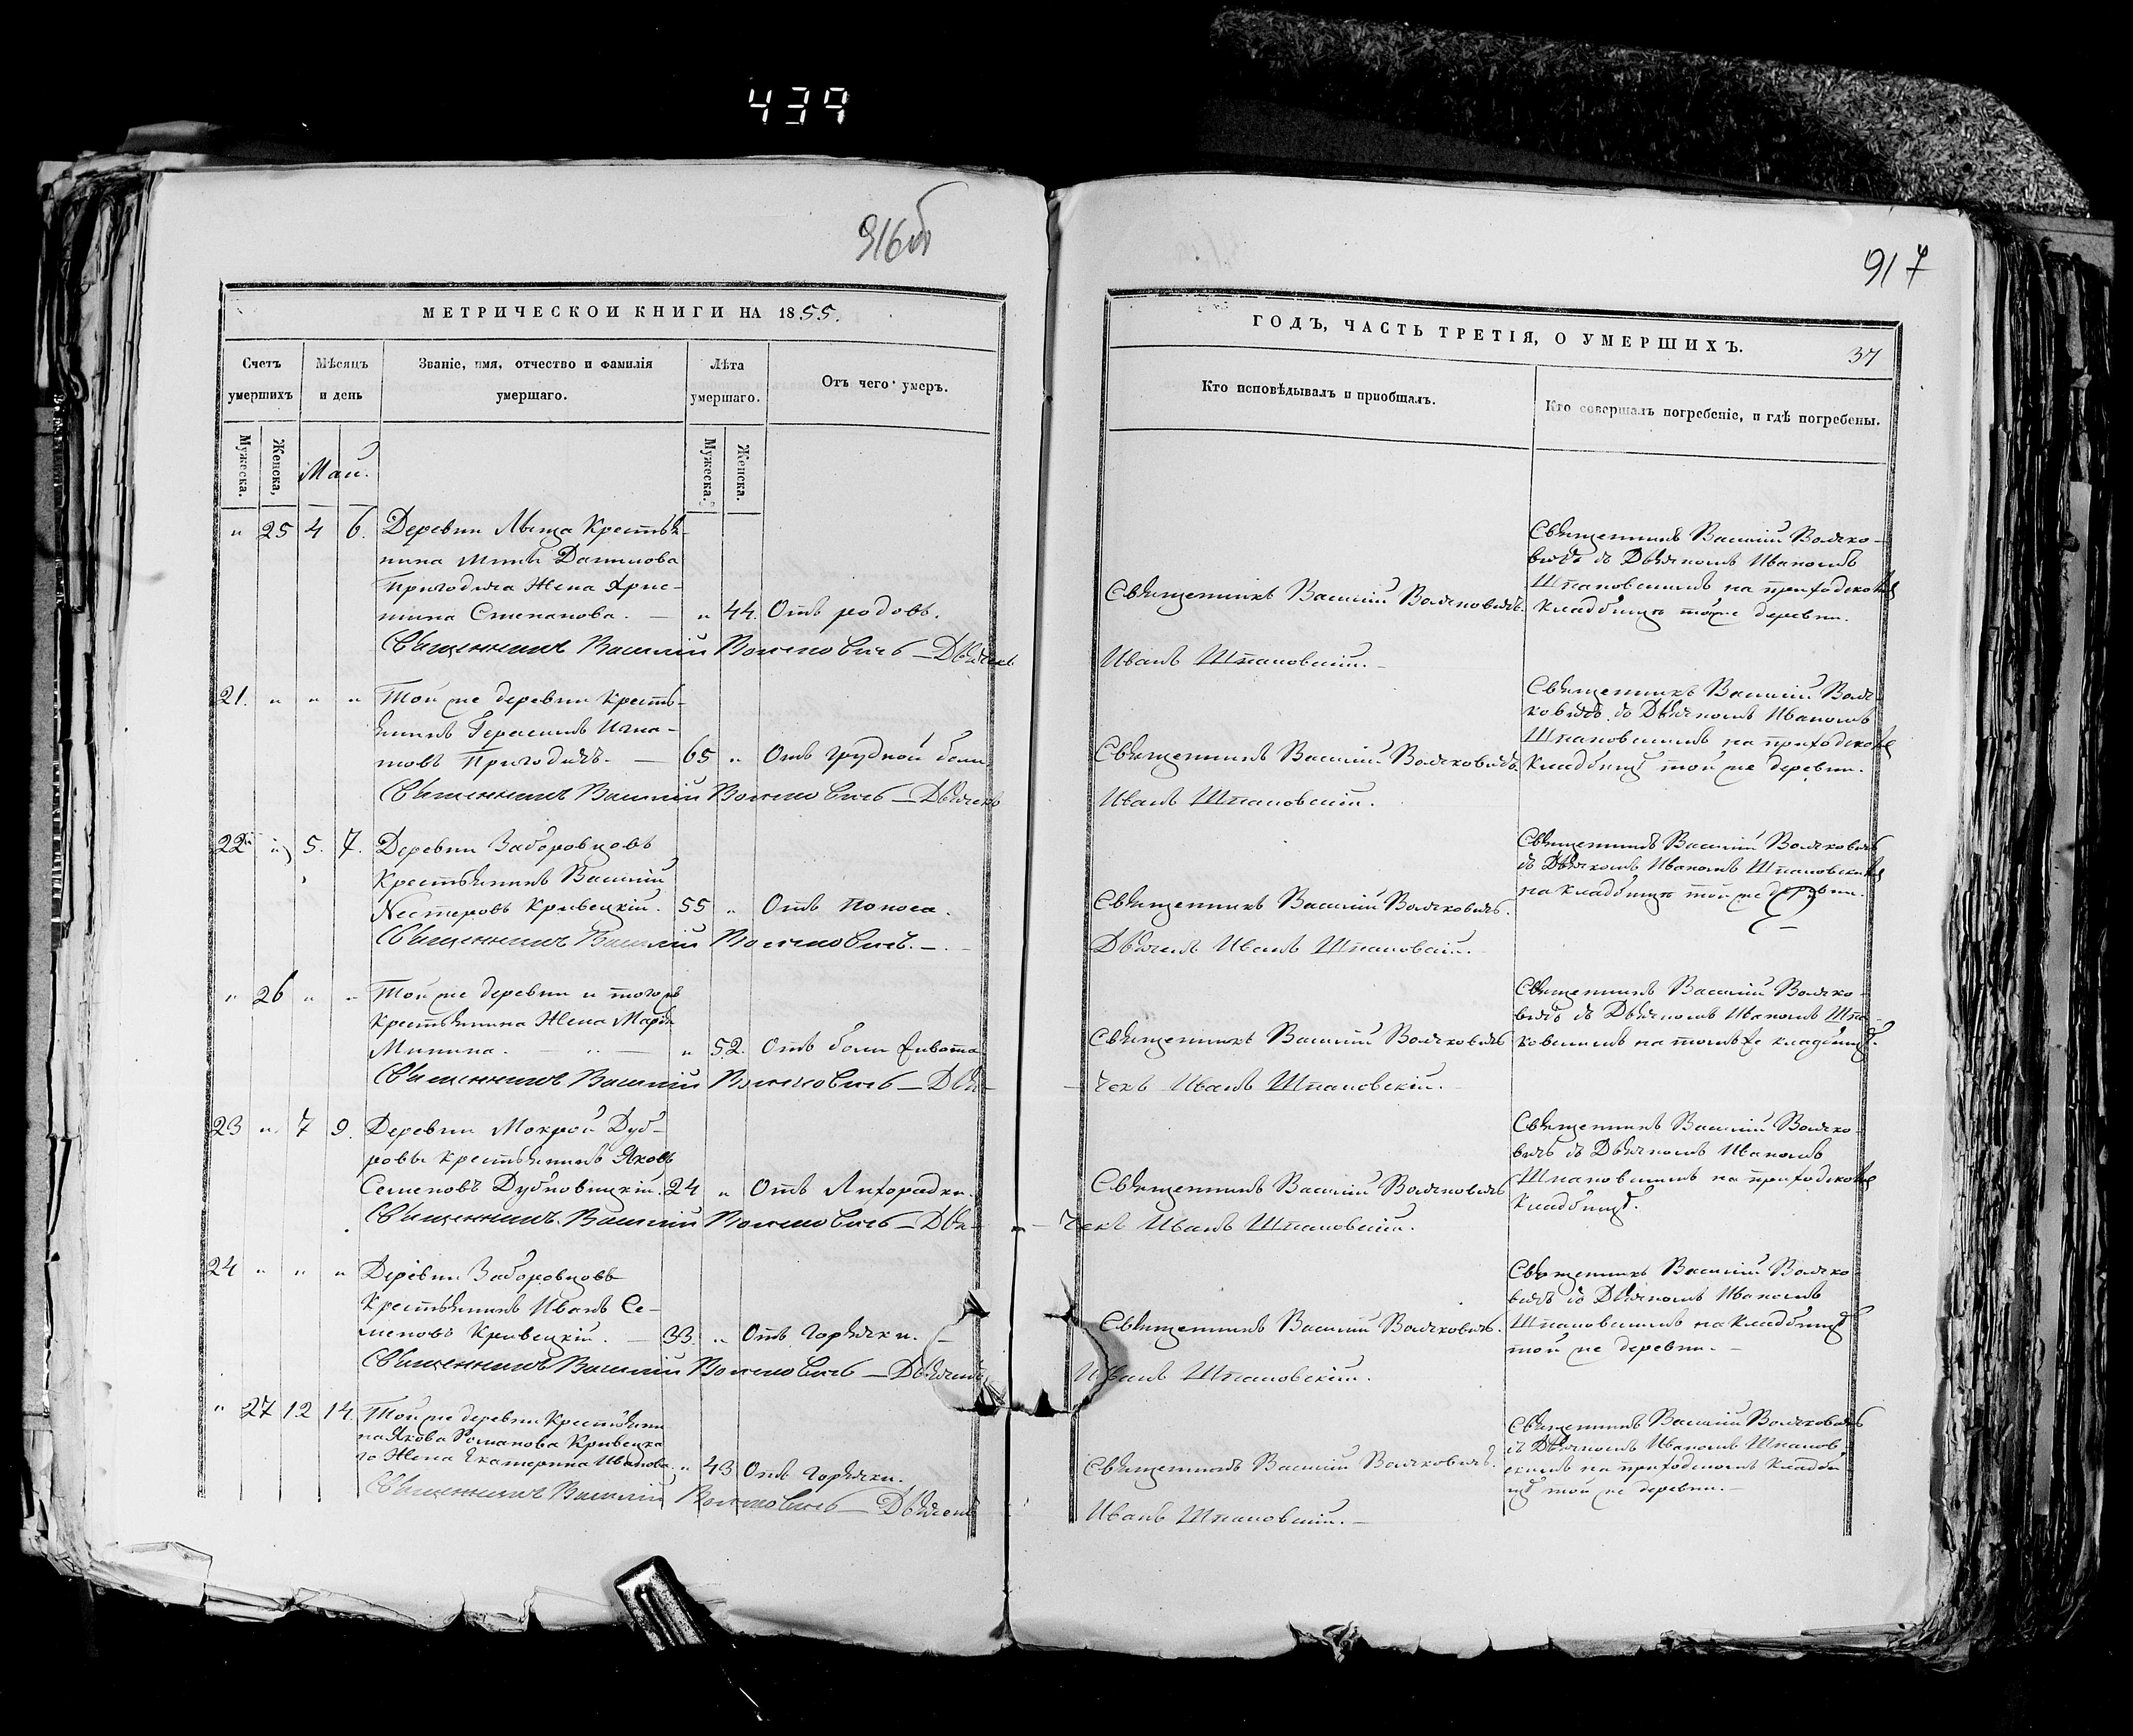 439
916об
917
МЕТРИЧЕСКОЙ КНИГИ НА 1855.
Счетъ умершихъ
Мѣсяцъ и день
Званіе, имя, отчество и фамилія умершаго.
Лѣта умершаго.
Отъ чего умеръ.
Мужеска. Женска,
Май.
Мужеска. Женска.
" 25 4 6. Деревни Лыща Крестья-
нина Мины Данилова
Пригодича Жена Хрис-
тина Степанова. — " 44. Отъ родовъ.
Священникъ Василій Волчковичъ — Дьячекъ
21. " " " Той же деревни кресть-
янинъ Герасимъ Игна-
товъ Пригодичъ. — 65 " Отъ грудной боли
Священникъ Василій Волчковичъ — Дьячекъ
22 " 5. 7. Деревни Заборовцовъ
Крестьянинъ Василій
Нестеровъ Кривецкій. 55 " Отъ поноса.
Священникъ Василій Волчковичъ. —
" 26 " " Той же деревни и тогожъ
крестьянина Жена Марія
Минина. — " — " 52. Отъ боли живота
Священникъ Василій Волчковичъ — Дья-
23 " 7 9. Деревни Мокрой Дуб-
ровы крестьянинъ Яковъ
Семеновъ Дубновицкій. 24 " Отъ Лихорадки.
Священникъ Василій Волчковичъ — Дья-
24 " " " Деревни Заборовцовъ
Крестьянинъ Иванъ Се-
меновъ Кривецкій. — 33. " Отъ Горячки. —
Священникъ Василій Волчковичъ — Дьячекъ
" 27 12 14. Той же деревни Крестьяни
на Якова Романова Кривецка
го Жена Екатерина Иванова " 43 Отъ Горячки.
Священникъ Василій Волчковичъ — Дьячекъ
ГОДЪ, ЧАСТЬ ТРЕТІЯ, О УМЕРШИХЪ.
37
Кто исповѣдывалъ и пріобщалъ.
Кто совершалъ погребеніе, и гдѣ погребены.
Священникъ Василій Волчко-
вичъ съ Дьячкомъ Иваномъ
Шпановскимъ на приходскомъ
Священникъ Василій Волчковичъ. кладбищѣ тойже деревни.
Иванъ Шпановскій. —
Священникъ Василій Волч-
ковичъ съ Дьячкомъ Иваномъ
Шпановскимъ на приходскомъ
Священникъ Василій Волчковичъ. кладбищѣ той же деревни.
Иванъ Шпановскій.
Священникъ Василій Волчковичъ
съ Дьячкомъ Иваномъ Шпановскимъ
на кладбищѣ той же деревни.
Священникъ Василій Волчковичъ.
Дьячекъ Иванъ Шпановскій.
Священникъ Василій Волчко-
вичъ съ Дьячкомъ Иваномъ Шпа-
Священникъ Василій Волчковичъ новскимъ на томъ же кладбищѣ.
— чекъ Иванъ Шпановскій.
Священникъ Василій Волчко-
вичъ съ Дьячкомъ Иваномъ
Священникъ Василій Волчковичъ Шпановскимъ на приходскомъ
кладбищѣ.
— чекъ Иванъ Шпановскій.
Священникъ Василій Волчко-
вичъ съ Дьячкомъ Иваномъ
Священникъ Василій Волчковичъ. Шпановскимъ на кладбищѣ
той же деревни. —
Иванъ Шпановскій.
Священникъ Василій Волчковичъ
съ Дьячкомъ Иваномъ Шпанов-
Священникъ Василій Волчковичъ. скимъ на приходскомъ кладби
щѣ той же деревни. —
Иванъ Шпановскій. —